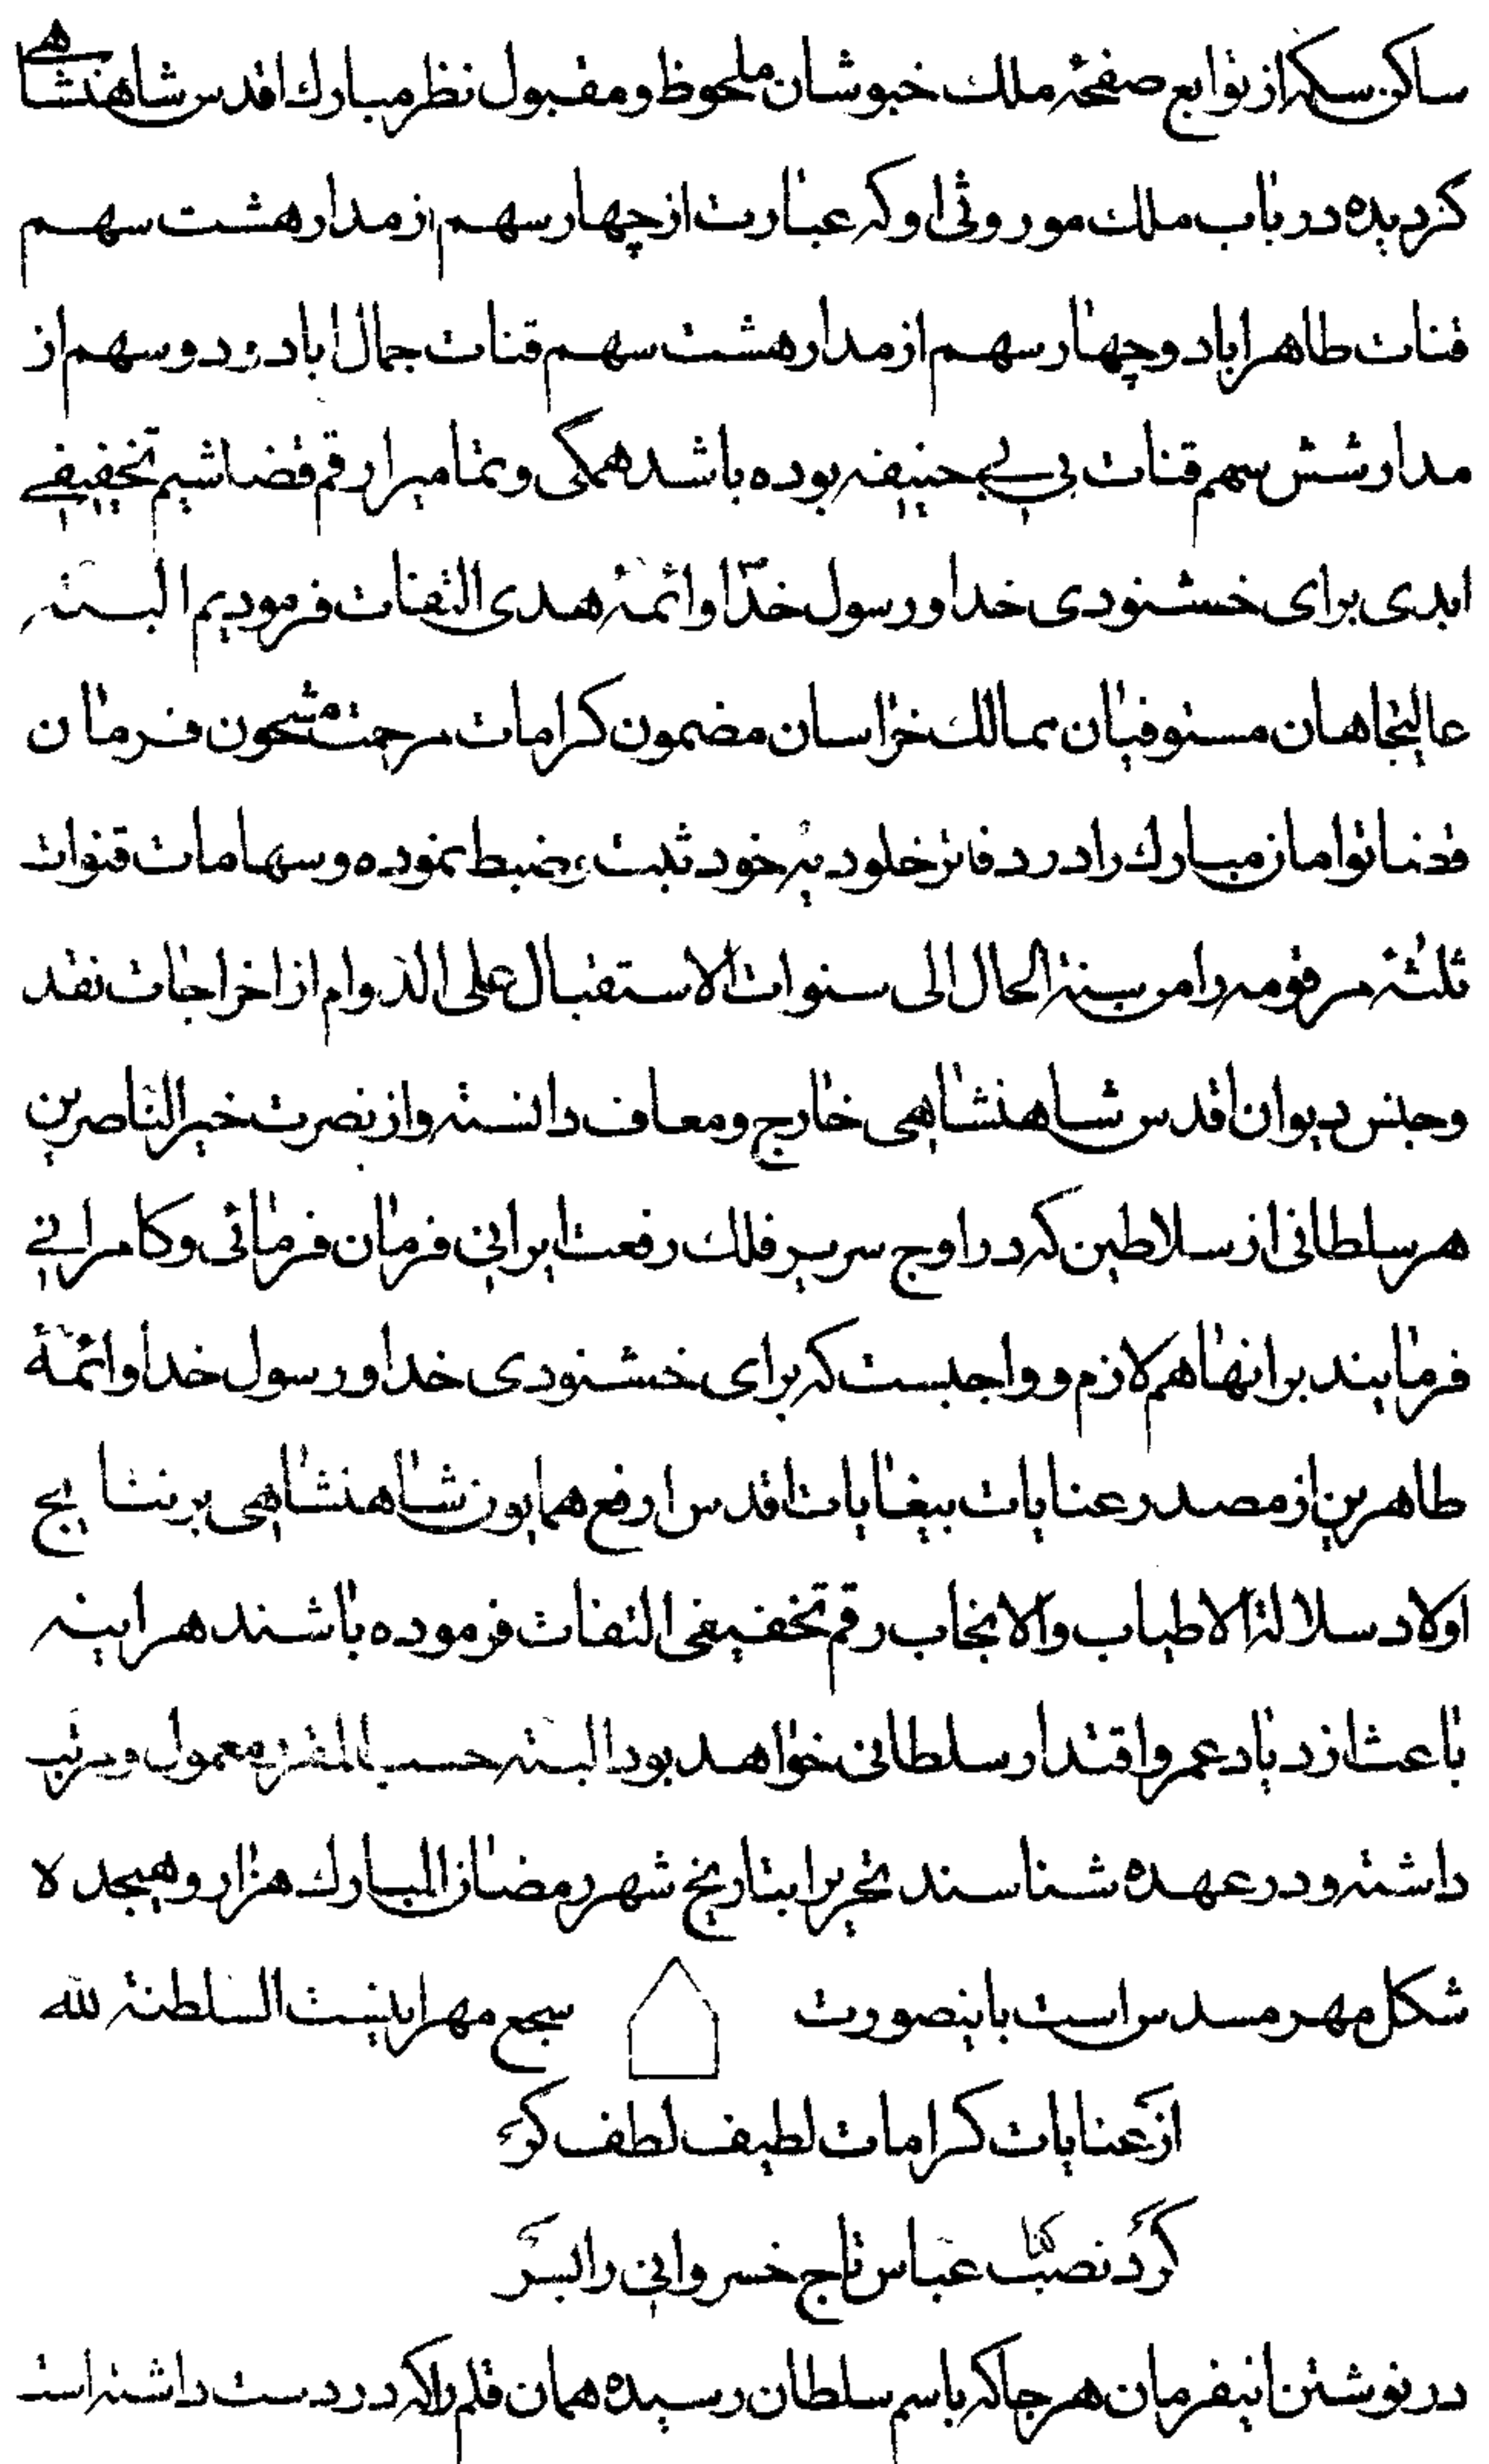 ساکن سکه از توابع صفحهٔ ملک خبوشان ملحوظ و مقبول نظر مبارک اقدس شاهنشاهی
کردیده در باب ملک موروثی او که عبارت از چهار سهم از مدار هشت سهم
قنات طاهراباد و چهار سهم از مدار هشت سهم قنات جمال اباد و دو سهم از
مدار شش سهم قنات بی بی حنیفه بوده باشد همکی و تمامیرا رقم قضا شیم تخفیفی
ابدی برای خشنودی خدا و رسول خدا و ائمهٔ هدی التفات فرمودیم البته
عالیجاهان مستوفیان ممالک خراسان مضمون کرامات مرحمت مشحون فرمان
قضا توامان مبارک را در دفاتر خلودیه خود ثبت و ضبط نموده و سهامات قنوات
ثلثهٔ مرقومه را من سنة الحال الی سنوات الاستقبال علی الدوام از اخراجات نقد
و جنس دیوان اقدس شاهنشاهی خارج و معاف دانسته و از نصرت خیر الناصرین
هر سلطانی از سلاطین که در اوج سریر فلک رفعت ایرانی فرمان فرمائی و کامرانی
فرمایند بر انها هم لازم و واجبست که برای خشنودی خدا و رسول خدا و ائمهٔ
طاهرین از مصدر عنایات بیغایات اقدس ارفع همایون شاهنشاهی بر نتایج
اولاد سلالة الاطیاب و الانجاب رقم تخفیفی التفات فرموده باشند هراینه
باعث ازدیاد عمر و اقتدار سلطانی خواهد بود البته حسب المقرر معمول و مرتب
داشته و در عهده شناسند تحریرا بتاریخ شهر رمضان المبارک هزار و هیجده
شکل مهر مسدس است باینصورت سجع مهر اینست السلطنة لله
از عنایات کرامات لطیف لطف
کرد نصب عباس تاج خسروانی را بسر
در نوشتن اینفرمان هر جا که باسم سلطان رسیده همان قلم را که در دست داشته است